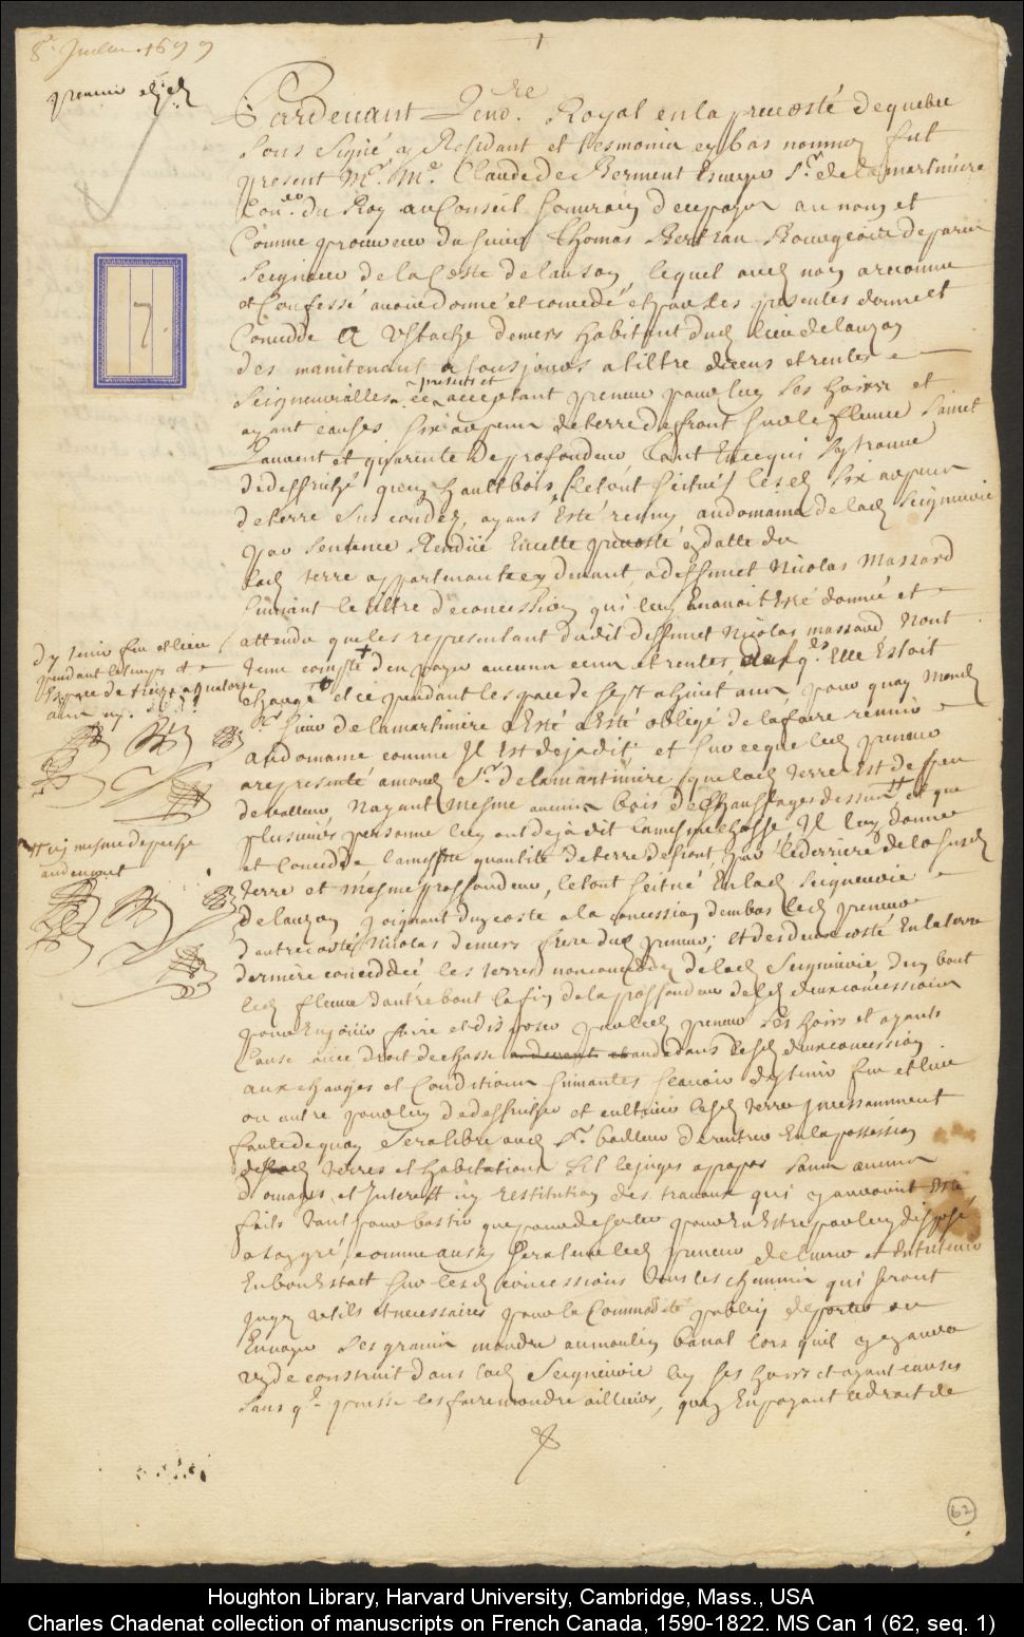 8e Juillet 1699
1
premiere expedn
Pardevant le no.re Royal en la prevosté de quebec
Sous Signé y Residant et tesmoins en bas nommez fut
present Mr. Me. Claude de Berment Escuyer Sr. de la martiniere
Con.er du Roy au Conseil Souverain de ce payis au nom et
Comme procureur du Sieur Thomas Bertran Bourgeois de paris
Seigneur de la Coste de lauzon, lequel aud nom a reconnu
et Confessé avoir donné et concedé et par ces presentes donne et
Concedde A Ustache demers habitant dud lieu de lauzon
des maintenant a tousjours a tiltre de cens et rentes
Seigneurialles present et
a ce acceptant preneur pour luy Ses hoirs et
ayant causes Six arpens de terre de front Sur le fleuve Sainct
Laurent et quarente de profondeur tant En ce qui Sy trouve
de deffriché quen hault bois, le tout scitué lesd Six arpens
de terre Sus concedez, ayans Esté reuny au domaine de lad Seigneurie
par Sentence Rendüe En cette prevosté en datte du
lad terre appartenante cy devant a deffunct Nicolas Massard
Suivant le tiltre de concession qui luy En avoit Esté donné et
attendu que les representant dudit deffunct Nicolas massard Nont
tenu compte + d'en payer aucuns cens et rentes desqls Elle Estoit
chargé et ce pendant lespace de sept a huict ans, pour quoy Mond
Sr. Sieur de lamartiniere a Esté obligé de la faire reunir
au domaine comme Il Est deja dit et Sur ce que led preneur
a representé amond Sr. de lamartiniere que lad terre Est de peu
de valleur Nayant Mesme aucun bois de Chauffages dessus ++ et que
plusieurs personne luy ont deja dit la mesme chosse, Il luy donne
et Concedde la mesme quantité de terre de front, par le derriere de la Susd
terre et mesme proffondeur, le tout scitué En lad Seigneurie
de lauzon joignant dun costé a la concession den bas led preneur
dautre costé Nicolas demers frere dud preneur; et des deux costé En la terre
derniere conceddée les terres non conceddez de lad Seigneurie, dun bout
led fleuve dautre bout la fin de la proffondeur desd deux concessions
pour En jouir faire et disposer par led preneur Ses hoirs et ayants
Cause avec droit de chasse au dedans desd deux concession
aux charges et Conditions Suivantes Scavoir dy tenir feu et lieu
ou autre pour luy de deffricher et cultiver lesd terres Incessamment
faute de quoy Sera libre aud Sr. bailleur de rentrer En la possession
desd terres et habitations Sil le juges apropos Sans aucuns
domages et Interest ny restitution des travaux qui y auroient Esté
faits tant pour bastir que pour deserter pour En Estre par luy disposé
a son gré, comme aussy Sera tenu led preneur de livrer et Entretenir
En bon Estat Sur lesd concessions tous les chemins qui Seront
jugez utils et necessaires pour la Commodité publiq de porter ou
Envoyer Ses grains moudre au moulin banal lors quil y en aura
un de construit dans lad Seigneurie luy ses hoirs et ayant causes
Sans q.l puisse les faire moudre ailleurs, quen En payant le droit de
+ dy tenir feu et lieu
pendant le temps et
Espace de treize a quatorze
ans
++ ny mesme de pesche
au devant
7
62
Houghton Library, Harvard University, Cambridge, Mass., USA
Charles Chadenat collection of manuscripts on French Canada, 1590-1822. MS Can 1 (62, seq. 1)